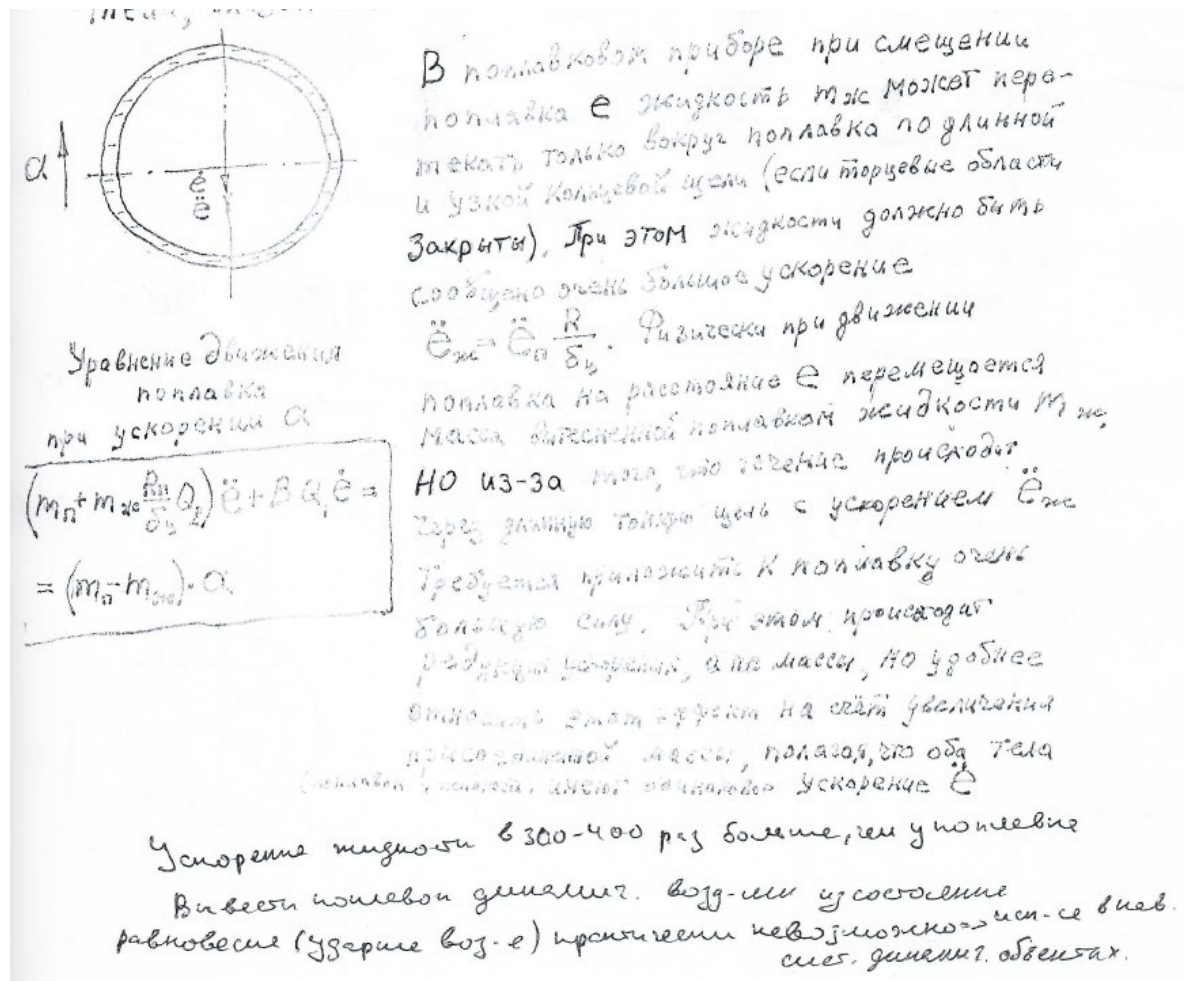 В поплавковом приборе при смещении
поплавка е жидкость mж может пере-
текать только вокруг поплавка по длинной
и узкой кольцевой щели (если торцевые области
закрыты). При этом жидкости должно быть
сообщено очень большое ускорение
ë_ж = ë_п R/δ_ц. Физически при движении
поплавка на расстояние е перемещается
масса вытесненной поплавком жидкости m_ж,
НО из-за того, что течение происходит
через длинную тонкую щель с ускорением ë_ж
требуется приложить к поплавку очень
большую силу. При этом происходит
редукция ускорения, а не массы, но удобнее
относить этот эффект на счёт увеличения
присоединённой массы, полагая, что оба тела
(поплавок и жидкость) имеют одинаковое ускорение ë
a
ė
ë
Уравнение движения
поплавка
при ускорении a
(m_п + m_ж R_п/δ_ц Q_2) ë + B Q_1 ė =
= (m_п - m_ж)·a
Ускорение жидкости в 300-400 раз больше, чем у поплавка
Вывести поплавок динамич. возд-ми из состояние
равновесия (ударные воз-е) практически невозможно => исп-ся в
сист. динамич. объектах.